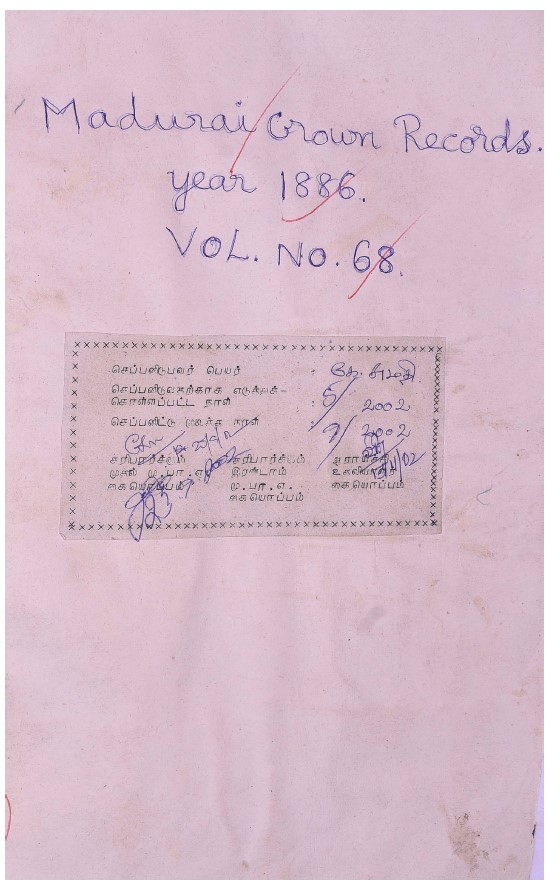 Madurai Crown Records.
year 1886.
VOL. NO. 68.
செப்பனிடுபவர் பெயர் :
செப்பனிடுவதற்காக எடுத்துக்-
கொள்ளப்பட்ட நாள் : 5/2002
செப்பனிட்டு முடித்த நாள் : 7/2002
சரிபார்க்கும் சரிபார்க்கும் ஆராய்ச்சி
முதல் மு.பா.எ. இரண்டாம் உதவியாளர்
கையொப்பம் மு.பா.எ. கையொப்பம்
கையொப்பம்